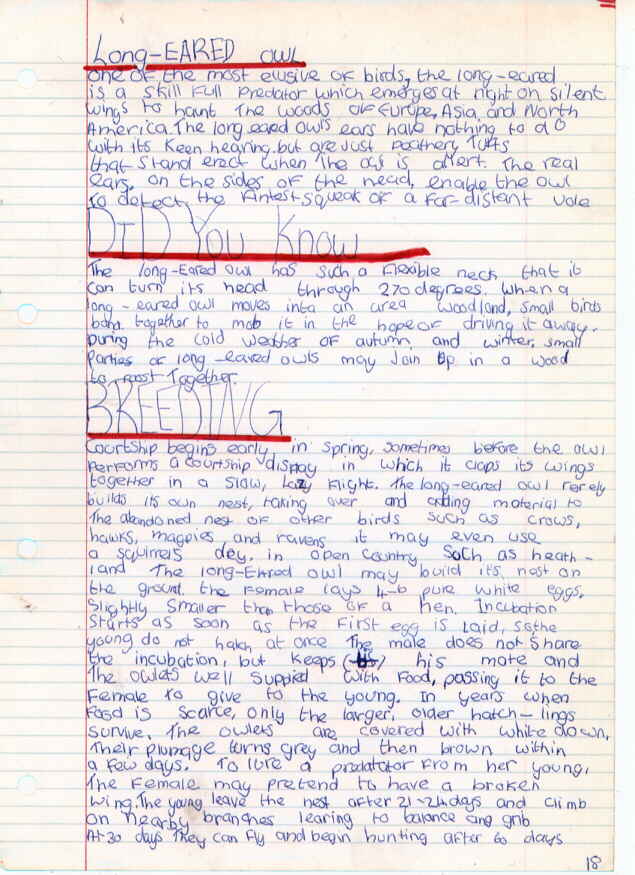 Long-EARED owl
One of the most elusive of birds, the long-eared
is a skill full predator which emerges at night on silent
wings to haunt The woods of Europe, Asia, and North
America. The long eared owls ears have nothing to do
with its keen hearing, but are just feathery Tufts
that stand erect when The owl is alert. The real
ears, on the sides of the head, enable the owl
To detect the fintest squeak of a far-distant vole
DiD You Know
The long-Eared owl has such a flexible neck that it
can turn its head through 270 degrees. When a
long-eared owl moves into an area woodland, small birds
band together to mob it in the hope of driving it away.
During the cold weather of autumn and winter, small
Parties of long-eared owls may Join up in a wood
to roost Together.
BREEDING
Courtship begins early in spring, sometimes before the owl
performs a courtship display in which it claps its wings
together in a slow, Lazy flight. The long-eared owl rerely
builds its own nest, taking over and adding material to
The abandoned nest of other birds such as crows,
hawks, magpies, and ravens it may even use
a squirrels dey. in open country such as heath-
land The long-Eared owl may build its nest on
the ground. the Female lays 4-6 pure white eggs,
Slightly smaller than those of a hen. Incubation
starts as soon as the first egg is laid, so the
young do not hatch at once The male does not share
the incubation, but keeps his mate and
The owlets well supplied with food, passing it to the
Female to give to the young. In years when
food is scarce, only the larger, older hatch-lings
survive. The owlets are covered with white down,
Their plumage turns grey and then brown within
a few days. To lure a predatator from her young,
The Female may pretend to have a broken
wing. The young leave the nest after 21-24 days and climb
on nearby branches learing to balance and grib
At 30 days They can fly and begin hunting after 60 days
18